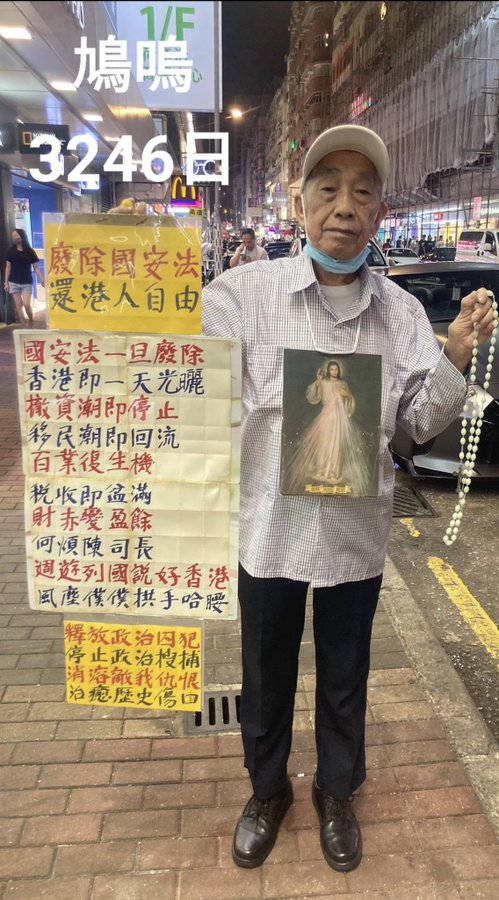 1/F
鳩嗚
3246日
廢除國安法
還港人自由
國安法一旦廢除
香港即一天光曬
撤資潮即停止
移民潮即回流
百業復生機
税收即盆滿
財赤變盈餘
何煩陳司長
週遊列國說好香港
風塵僕僕拱手哈腰
釋放政治囚犯
停止政治搜捕
消溶敵我仇恨
治癒歷史傷田